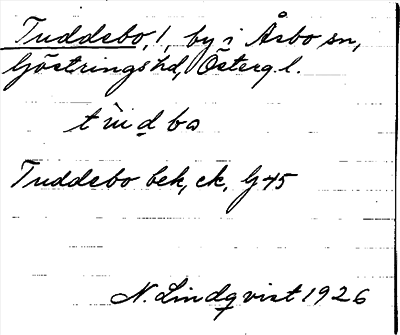 Tuddebo, 1, by i Åsbo sn,
Göstrings hd, Österg. l.
Tuddebo bek, ek, G45
N. Lindqvist 1926